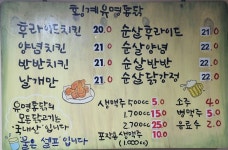 횡계유명통닭
후라이드치킨 20.0
양념치킨 21.0
반반치킨 21.0
날개만 21.0
순살후라이드 21.0
순살양념 22.0
순살반반 22.0
순살닭강정 22.0
유명통닭의
모든닭고기는
국내산 입니다
물은 셀프 입니다
생맥주 500cc 5.0
1.700cc 15.0
2.700cc 25.0
포장용생맥주 10.0
(1.000cc)
소주 4.0
병맥주 5.0
음료수 2.0